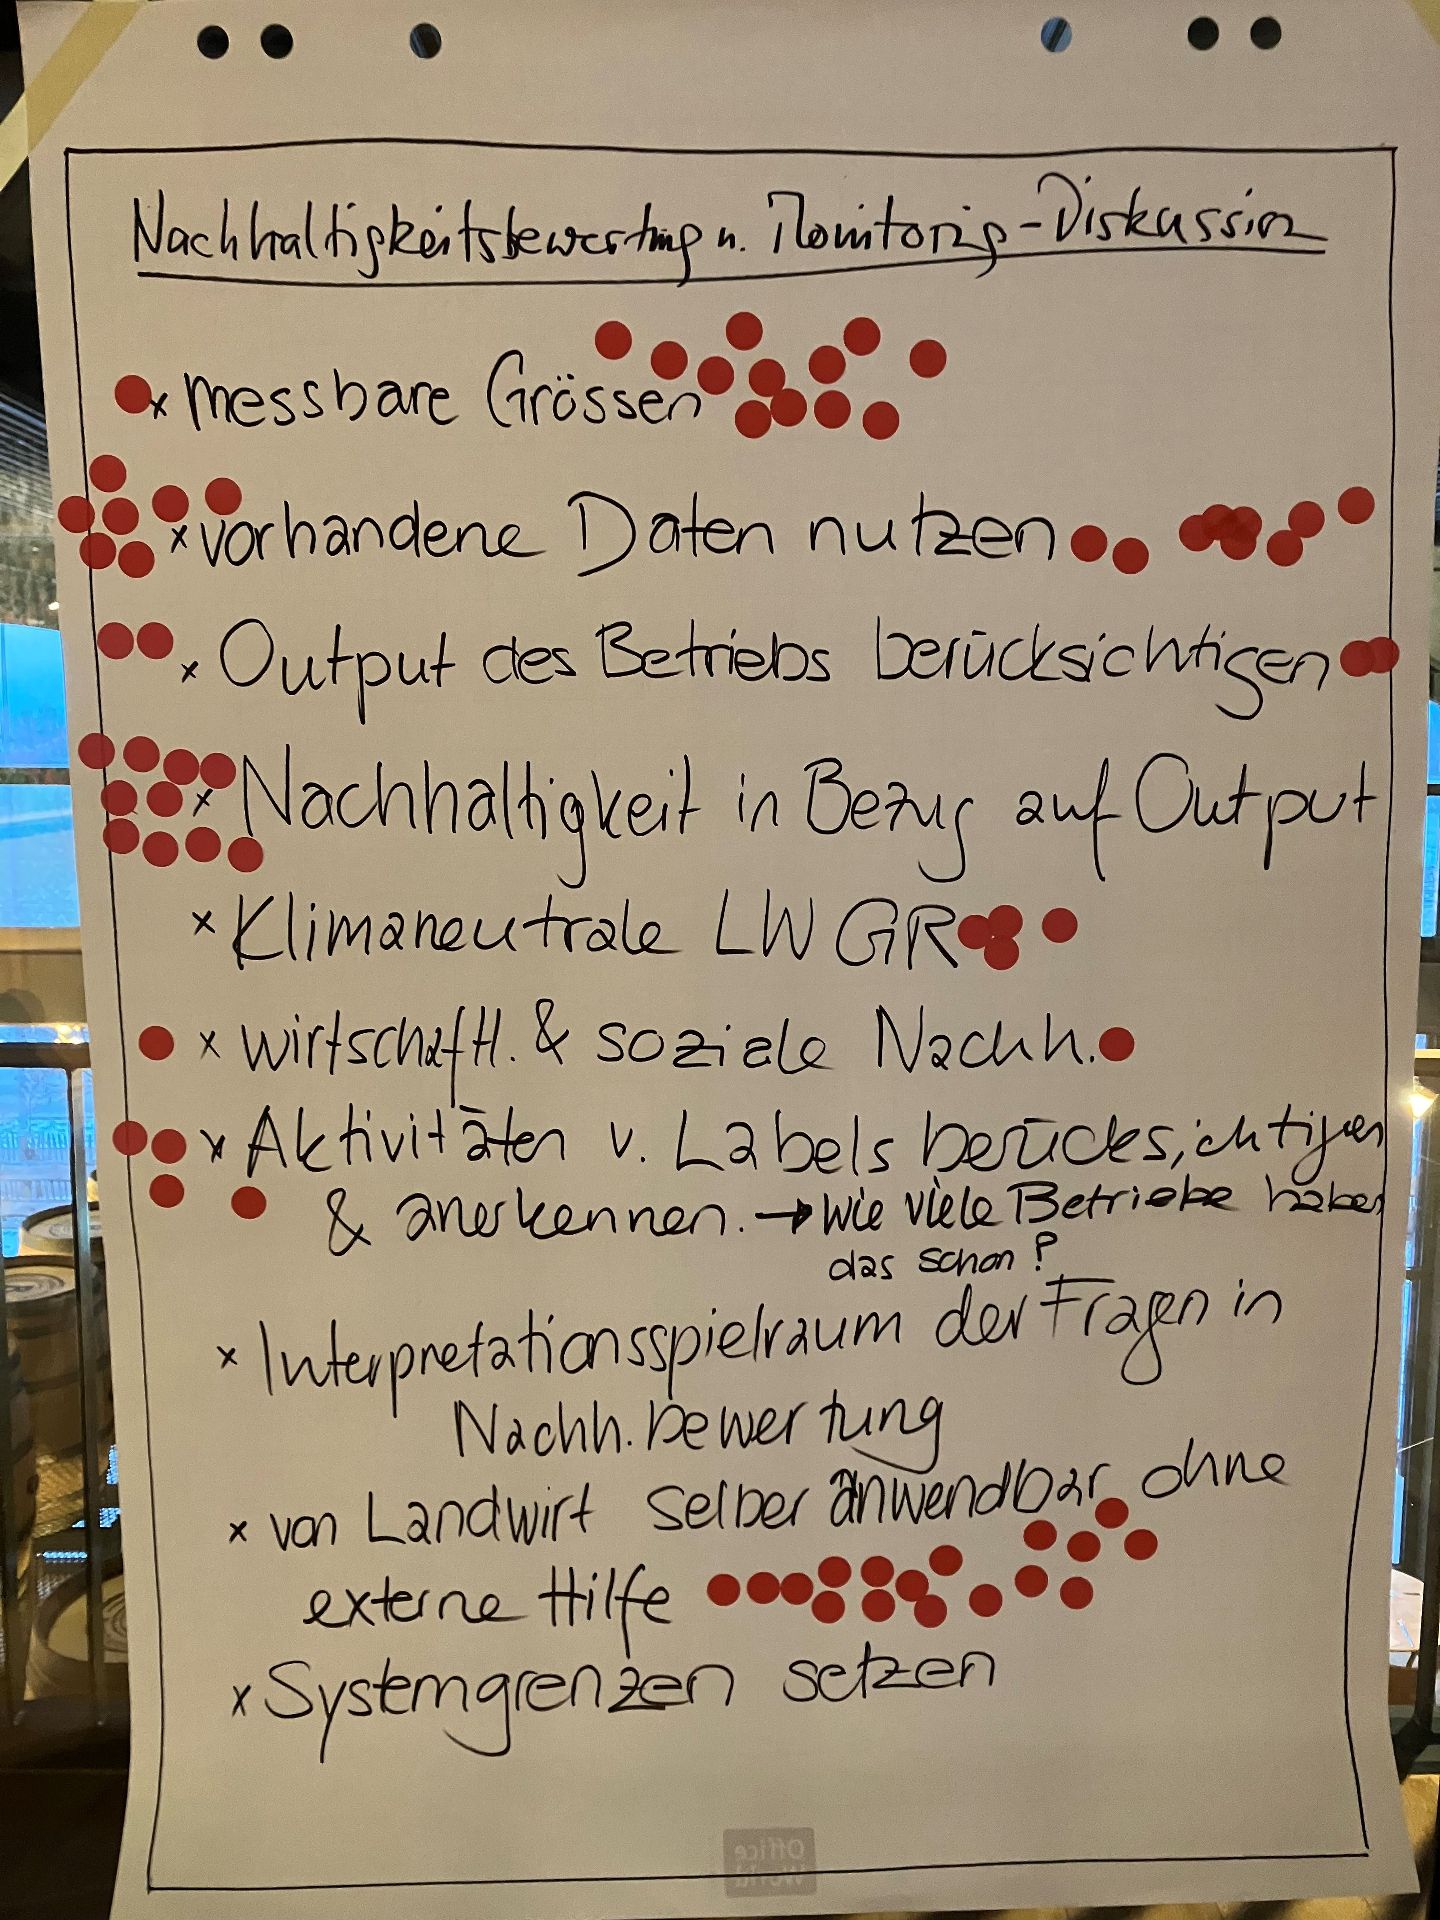 Nachhaltigkeitsbewertung u. Monitoring-Diskussion
x messbare Grössen
x vorhandene Daten nutzen
x Output des Betriebs berücksichtigen
x Nachhaltigkeit in Bezug auf Output
x Klimaneutrale LW GR
x wirtschaftl. & soziale Nachh.
x Aktivitäten v. Labels berücksichtigen
& anerkennen. → Wie viele Betriebe haben
das schon?
x Interpretationsspielraum der Fragen in
Nachh. bewertung
x von Landwirt selber anwendbar ohne
externe Hilfe
x Systemgrenzen setzen
Office
World